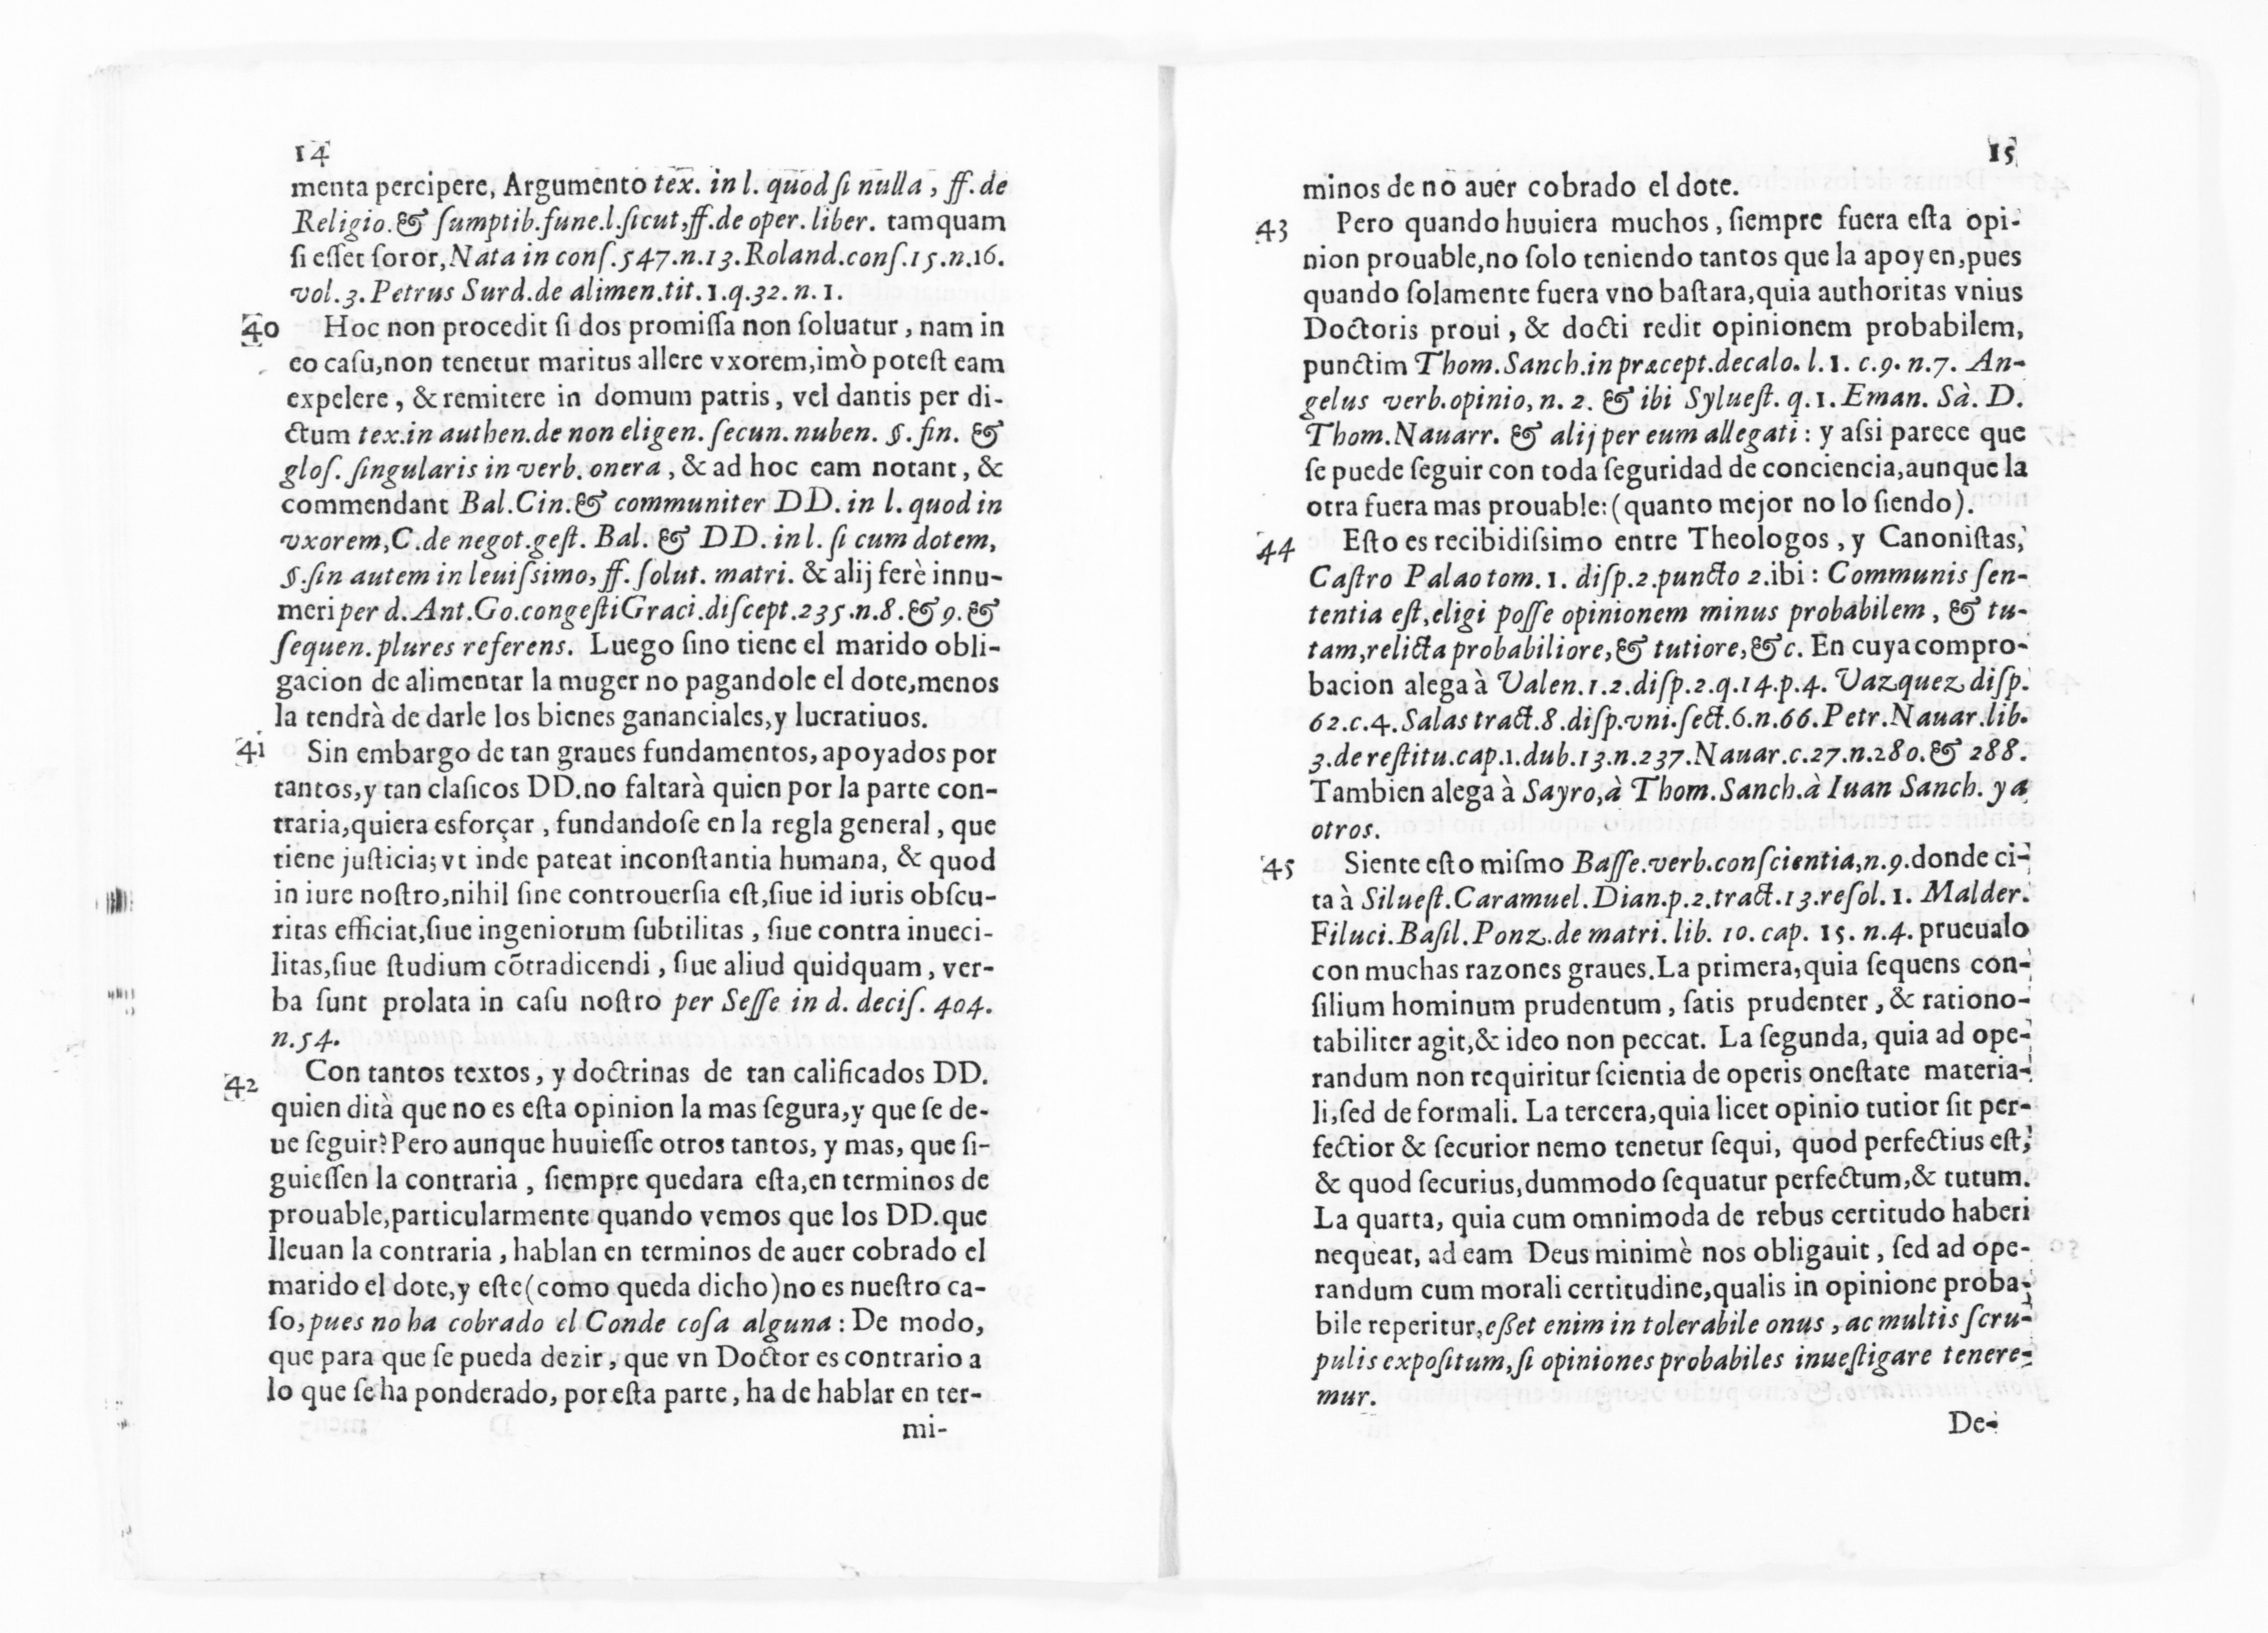 14
menta percipere, Argumento tex. in l. quod ſi nulla, ff. de
Religio. & ſumptib. fune. l. ſicut, ff. de oper. liber. tamquam
ſi eſſet ſoror, Nata in conſ. 547. n. 13. Roland. conſ. 15. n. 16.
vol. 3. Petrus Surd. de alimen. tit. 1. q. 32. n. 1.
40 Hoc non procedit ſi dos promiſſa non ſoluatur, nam in
eo caſu, non tenetur maritus allere vxorem, imò poteſt eam
expelere, & remitere in domum patris, vel dantis per di-
ctum tex. in authen. de non eligen. ſecun. nuben. §. fin. &
gloſ. ſingularis in verb. onera, & ad hoc eam notant, &
commendant Bal. Cin. & communiter DD. in l. quod in
vxorem, C. de negot. geſt. Bal. & DD. in l. ſi cum dotem,
§. ſin autem in leuiſsimo, ff. ſolut. matri. & alij ferè innu-
meri per d. Ant. Go. congeſti Graci. diſcept. 235. n. 8. & 9. &
ſequen. plures referens. Luego ſino tiene el marido obli-
gacion de alimentar la muger no pagandole el dote, menos
la tendrà de darle los bienes gananciales, y lucratiuos.
41 Sin embargo de tan graues fundamentos, apoyados por
tantos, y tan claſicos DD. no faltarà quien por la parte con-
traria, quiera esforçar, fundandoſe en la regla general, que
tiene juſticia; vt inde pateat inconſtantia humana, & quod
in iure noſtro, nihil ſine controuerſia eſt, ſiue id iuris obſcu-
ritas efficiat, ſiue ingeniorum ſubtilitas, ſiue contra inueci-
litas, ſiue ſtudium cõtradicendi, ſiue aliud quidquam, ver-
ba ſunt prolata in caſu noſtro per Seſſe in d. deciſ. 404.
n. 54.
42 Con tantos textos, y doctrinas de tan calificados DD.
quien dirà que no es eſta opinion la mas ſegura, y que ſe de-
ue ſeguir? Pero aunque huuieſſe otros tantos, y mas, que ſi-
guieſſen la contraria, ſiempre quedara eſta, en terminos de
prouable, particularmente quando vemos que los DD. que
lleuan la contraria, hablan en terminos de auer cobrado el
marido el dote, y eſte (como queda dicho) no es nueſtro ca-
ſo, pues no ha cobrado el Conde coſa alguna: De modo,
que para que ſe pueda dezir, que vn Doctor es contrario a
lo que ſe ha ponderado, por eſta parte, ha de hablar en ter-
mi-
15
minos de no auer cobrado el dote.
43 Pero quando huuiera muchos, ſiempre fuera eſta opi-
nion prouable, no ſolo teniendo tantos que la apoyen, pues
quando ſolamente fuera vno baſtara, quia authoritas vnius
Doctoris proui, & docti redit opinionem probabilem,
punctim Thom. Sanch. in præcept. decalo. l. 1. c. 9. n. 7. An-
gelus verb. opinio, n. 2. & ibi Sylueſt. q. 1. Eman. Sà. D.
Thom. Nauarr. & alij per eum allegati: y aſsi parece que
ſe puede ſeguir con toda ſeguridad de conciencia, aunque la
otra fuera mas prouable: (quanto mejor no lo ſiendo).
44 Eſto es recibidiſsimo entre Theologos, y Canoniſtas,
Caſtro Palao tom. 1. diſp. 2. puncto 2. ibi: Communis ſen-
tentia eſt, eligi poſſe opinionem minus probabilem, & tu-
tam, relicta probabiliore, & tutiore, &c. En cuya compro-
bacion alega à Valen. 1. 2. diſp. 2. q. 14. p. 4. Vazquez diſp.
62. c. 4. Salas tract. 8. diſp. vni. ſect. 6. n. 66. Petr. Nauar. lib.
3. de reſtitu. cap. 1. dub. 13. n. 237. Nauar. c. 27. n. 280. & 288.
Tambien alega à Sayro, à Thom. Sanch. à Iuan Sanch. y a
otros.
45 Siente eſto miſmo Baſſe. verb. conſcientia, n. 9. donde ci-
ta à Silueſt. Caramuel. Dian. p. 2. tract. 13. reſol. 1. Malder.
Filuci. Baſil. Ponz. de matri. lib. 10. cap. 15. n. 4. prueualo
con muchas razones graues. La primera, quia ſequens con-
ſilium hominum prudentum, ſatis prudenter, & rationo-
tabiliter agit, & ideo non peccat. La ſegunda, quia ad ope-
randum non requiritur ſcientia de operis oneſtate materia-
li, ſed de formali. La tercera, quia licet opinio tutior ſit per-
fectior & ſecurior nemo tenetur ſequi, quod perfectius eſt,
& quod ſecurius, dummodo ſequatur perfectum, & tutum.
La quarta, quia cum omnimoda de rebus certitudo haberi
nequeat, ad eam Deus minimè nos obligauit, ſed ad ope-
randum cum morali certitudine, qualis in opinione proba-
bile reperitur, eßet enim in tolerabile onus, ac multis ſcru-
pulis expoſitum, ſi opiniones probabiles inueſtigare tenere-
mur.
De-